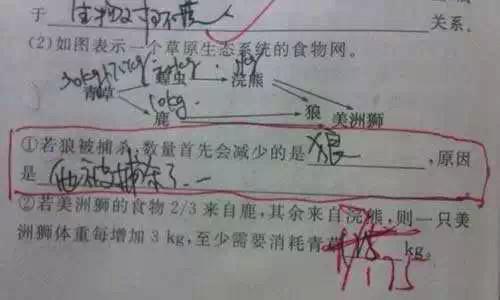 于 生物对环境 关系.
(2)如图表示一个草原生态系统的食物网。
青草 蝗虫 浣熊
10kg
鹿 狼 美洲狮
①若狼被捕杀,数量首先会减少的是 狼 ,原因
是 他被捕杀了
②若美洲狮的食物 2/3 来自鹿,其余来自浣熊,则一只美
洲狮体重每增加 3 kg,至少需要消耗青草 kg。
175